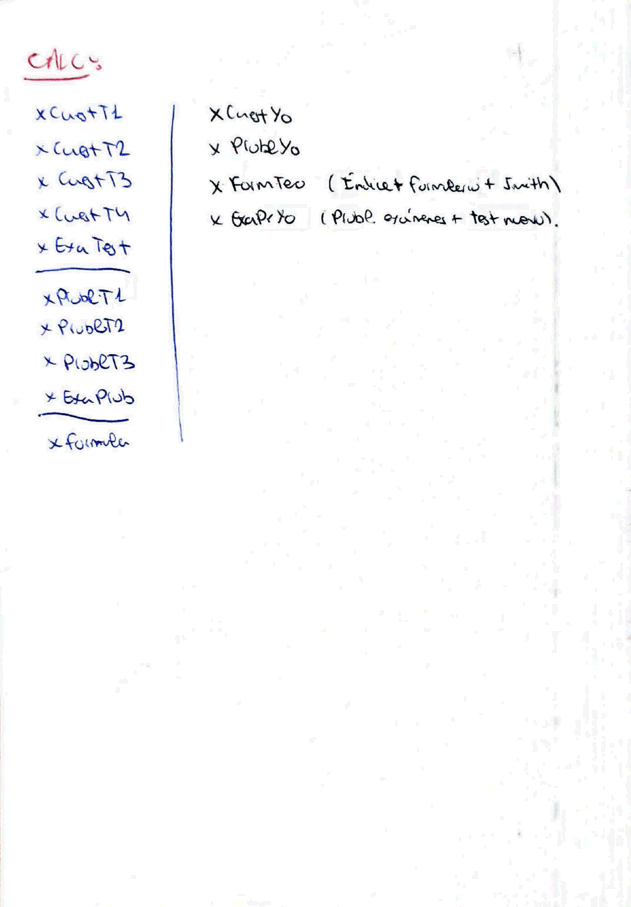 CALCS
x CuestT1
x CuestT2
x CuestT3
x CuestT4
x ExaTest
x ProblT1
x ProblT2
x ProblT3
x ExaProb
x formula
x CuestYo
x ProblYo
x FormTeo (Índice + formulario + Smith)
x ExaPrYo (Probl. exámenes + test nuevo).